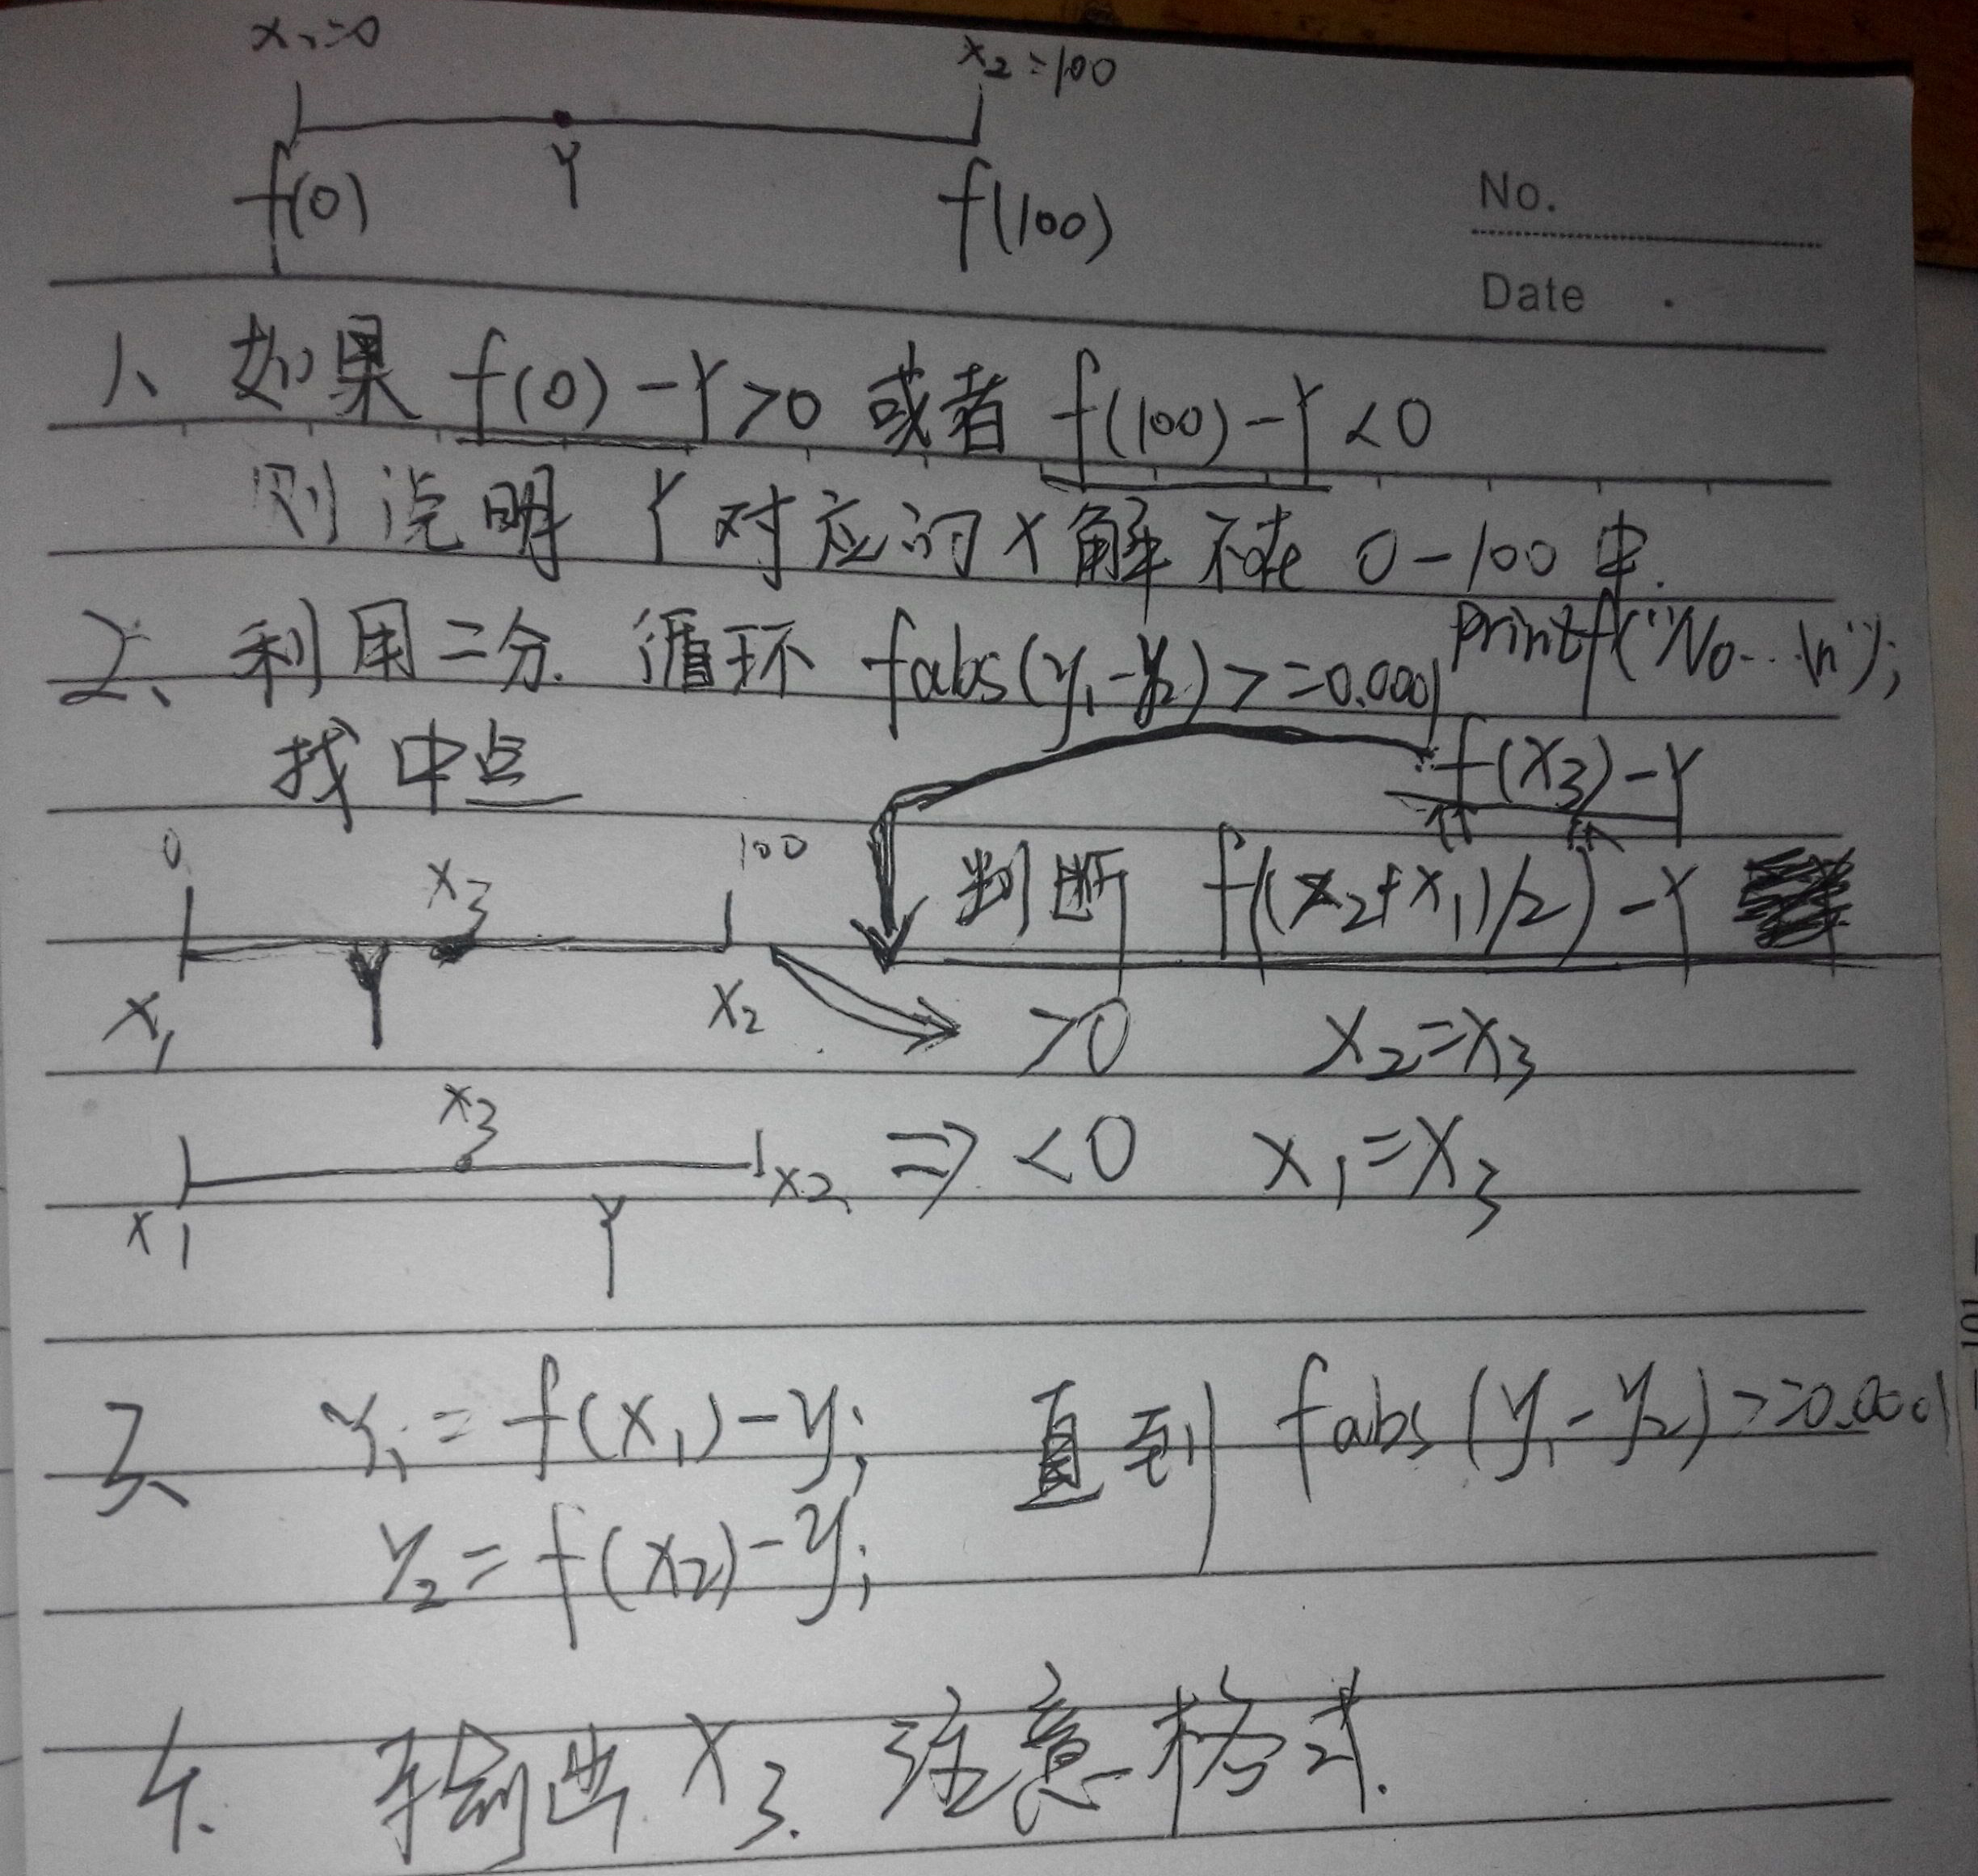 x₁=0
x₂=100
Y
f(0)
f(100)
No.
Date
1、如果 f(0)-Y>0 或者 f(100)-Y<0
则说明 Y对应的X解不在 0-100中.
printf("No...\n");
2、利用二分. 循环 fabs(y₁-y₂)>=0.0001
找中点
f(X₃)-Y
0
100
X₃
判断 f((x₂+x₁)/2)-Y
Y
X₁
X₂
>0 X₂=X₃
X₃
X₂ => <0 X₁=X₃
X₁
Y
3、 Y₁=f(X₁)-y; 直到 fabs(y₁-y₂)>=0.0001
Y₂=f(X₂)-y;
4. 输出 X₃. 注意格式.